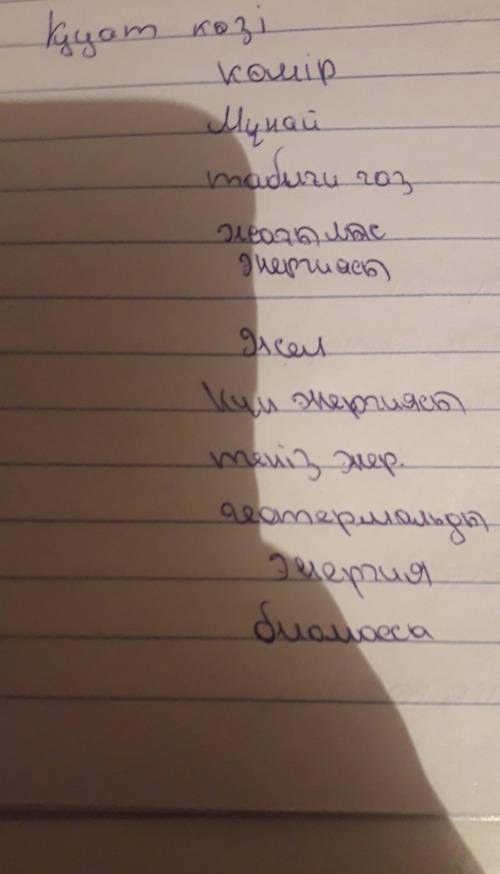 Қуат көзі
көмір
Мұнай
табиғи газ
энергиясы
Жел
Күн энергиясы
теңіз энер.
геотермальды
энергия
биомасса